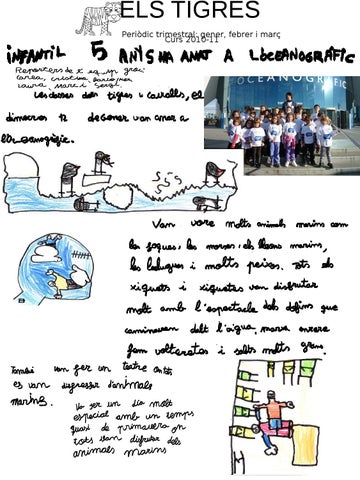 ELS TIGRES
Periòdic trimestral: gener, febrer i març
Curs 2010-11
INFANTIL 5 ANYS HA ANAT A L'OCEANOGRÀFIC
OCEANOGRÀFIC
Les classes dels tigres i cavalls, el
dimecres 12 de gener van anar a
l'Oceanogràfic.
Van vore molts animals marins com
les foques, les morses, els lleons marins,
les belugues i molts peixos. Tots els
xiquets i xiquetes van disfrutar
molt amb l'espectacle dels dofins que
caminaven dalt l'aigua, marxa enrere
fem volteretes i salts molts grans.
També van fer un teatre on tots
es van disfressar d'animals
marins.
Va fer un dia molt
especial amb un temps
quasi de primavera on
tots van disfrutar dels
animals marins